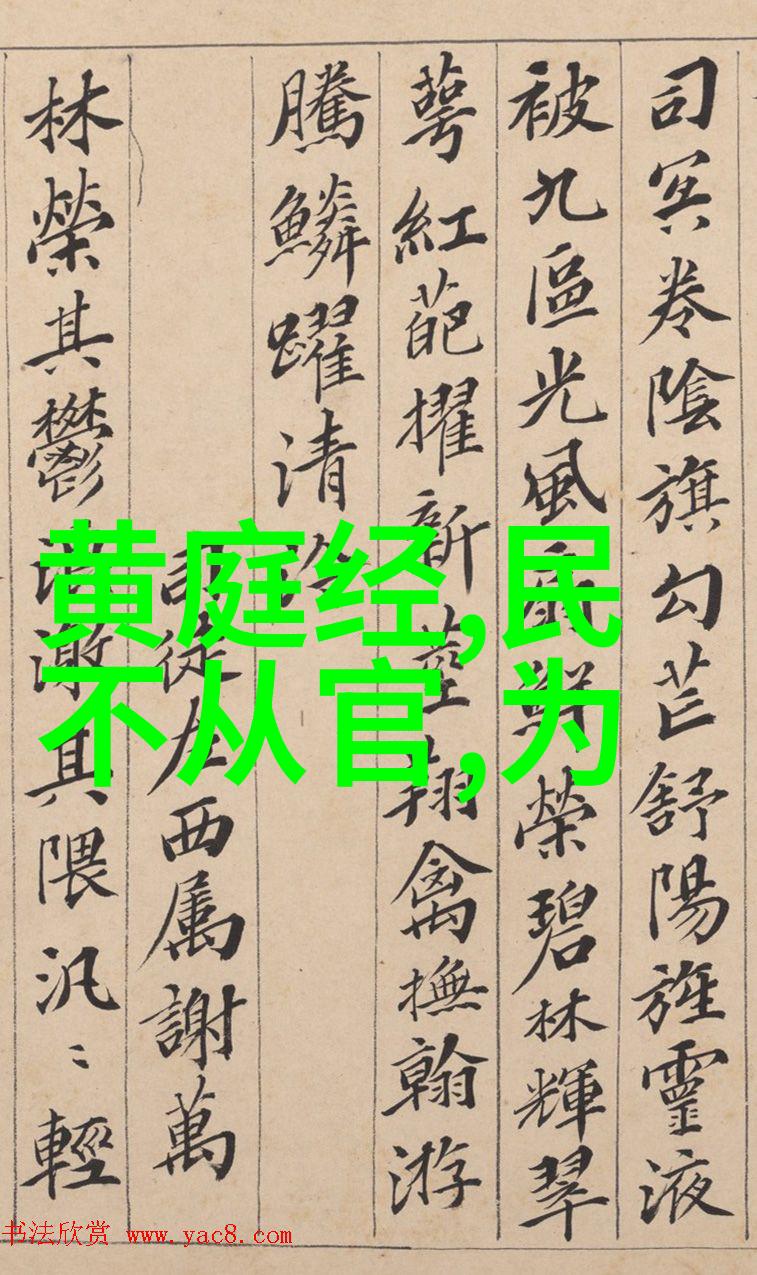 司冥卷陰旗勾芒舒陽旌靈液
被九區光風扇鮮榮碧林輝翠
萼紅葩擢新莖翔禽撫翰游
騰鱗躍清泠
司徒左西属謝萬
林榮其鬱浪激其隈汎〻輕
黄庭经,民
不从官,为
书法欣赏 www.yac8.com